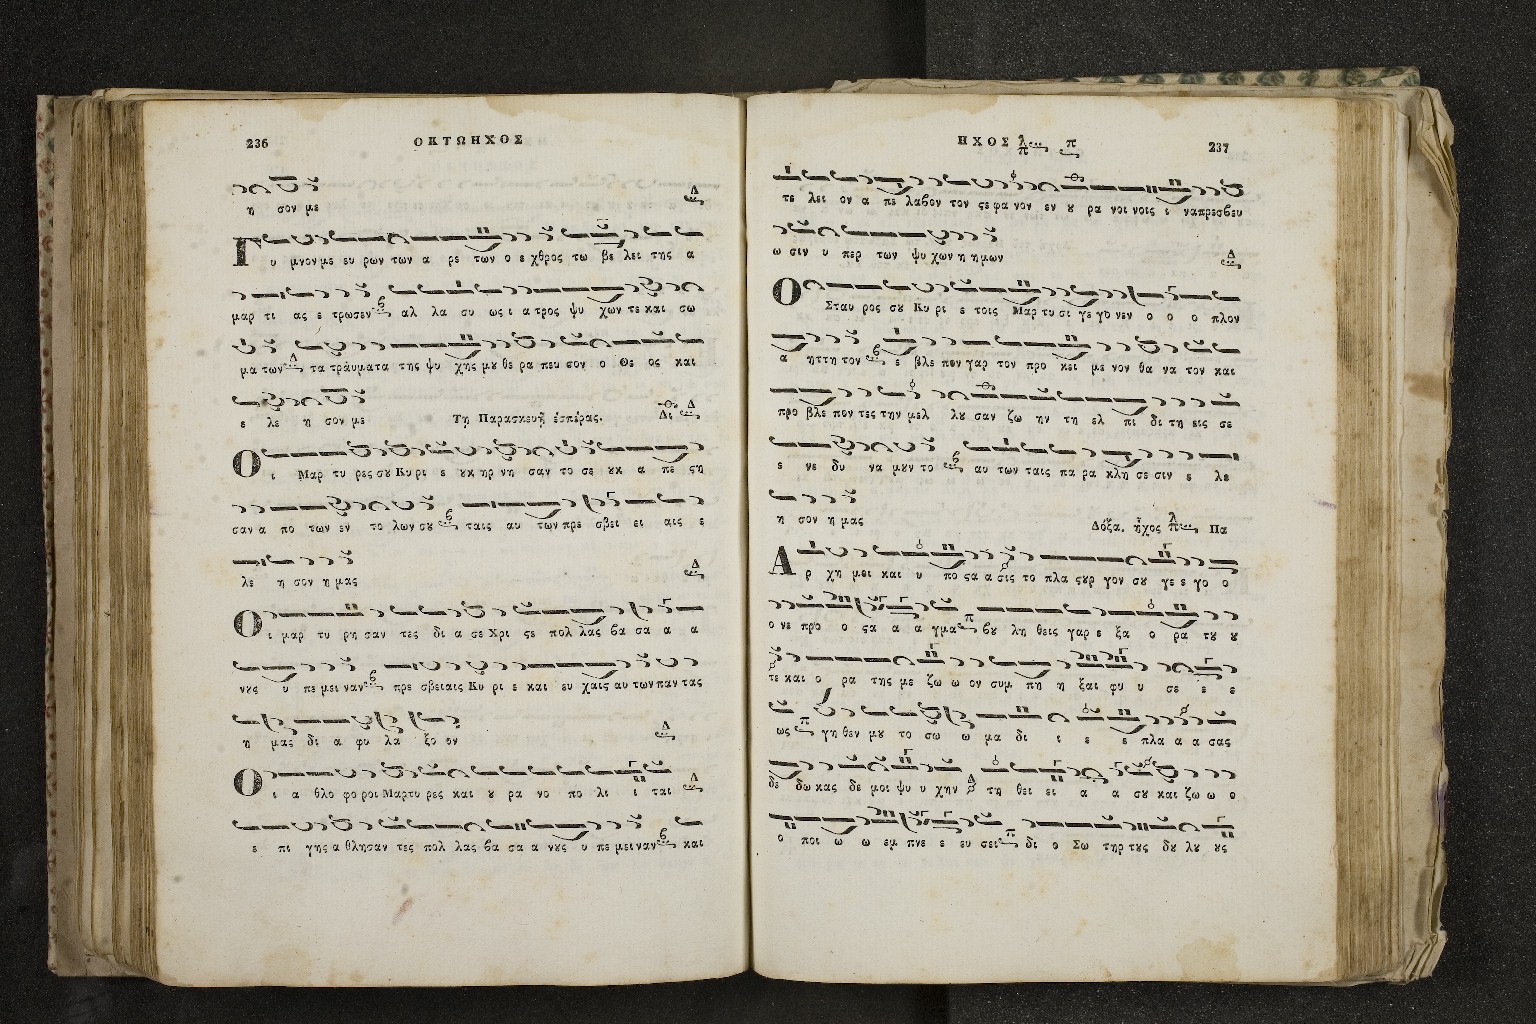 236 ΟΚΤΩΗΧΟΣ
η σον με
Γυ μνον με ευ ρων των α ρε των ο ε χθρος τω βε λει της α
μαρ τι ας ε τρωσεν αλ λα συ ως ι α τρος ψυ χων τε και σω
μα των τα τραυματα της ψυ χης μȣ θε ρα πευ σον ο Θε ος και
ε λε η σον με Τη Παρασκευῇ ἑσπέρας.
Οι Μαρ τυ ρες σȣ Κυ ρι ε ȣκ ηρ νη σαν το σε ȣκ α πε ϛη
σαν α πο των εν το λων σȣ ταις αυ των πρε σβει ει αις ε
λε η σον η μας
Οι μαρ τυ ρη σαν τες δι α σε Χρι ϛε πολ λας βα σα α α
νȣς υ πε μει ναν πρε σβειαις Κυ ρι ε και ευ χαις αυ των παν τας
η μας δι α φυ λα ξο ον
Οι α θλο φο ροι Μαρτυ ρες και ȣ ρα νο πο λι ι ται
ε πι γης α θλησαν τες πολ λας βα σα α νȣς υ πε μει ναν και
ΗΧΟΣ 237
τε λει ον α πε λαβον τον ϛε φα νον εν ȣ ρα νοι νοις ι ναπρεσβευ
ω σιν υ περ των ψυ χων η η μων
Ο Σταυ ρος σȣ Κυ ρι ε τοις Μαρ τυ σι γε γο νεν ο ο ο πλον
α ηττη τον ε βλε πον γαρ τον προ κει με νον θα να τον και
προ βλε πον τες την μελ λȣ σαν ζω ην τη ελ πι δι τη εις σε
ε νε δυ να μȣν το αυ των ταις πα ρα κλη σε σιν ε λε
η σον η μας Δόξα. ἦχος Πα
Α ρ χη μοι και υ πο ϛα α σις το πλα ϛȣρ γον σȣ γε ε γο ο
ο νε προ ο ϛα α α γμα βȣ λη θεις γαρ ε ξα ο ρα τȣ ȣ
τε και ο ρα της με ζω ω ον συμ πη η ξαι φυ υ σε ε ε
ως γη θεν μȣ το σω ω μα δι ι ε ε πλα α α σας
δε δω κας δε μοι ψυ υ χην τη θει ει α α σȣ και ζω ω ο
ο ποι ω ω εμ πνε ε ευ σει δι ο Σω τηρ τȣς δȣ λȣ ȣς